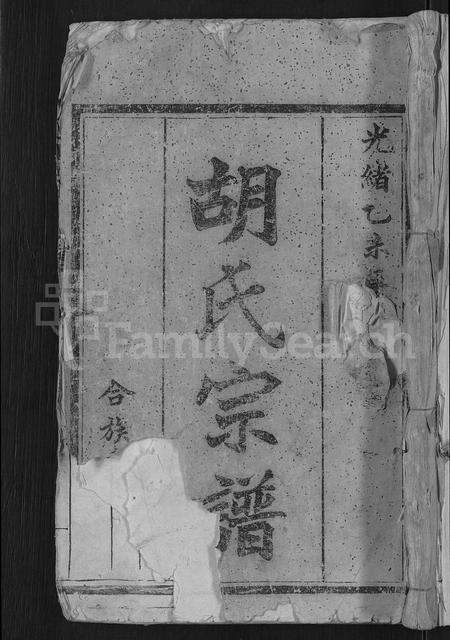 光緒乙未
胡氏宗譜
合族
FamilySearch